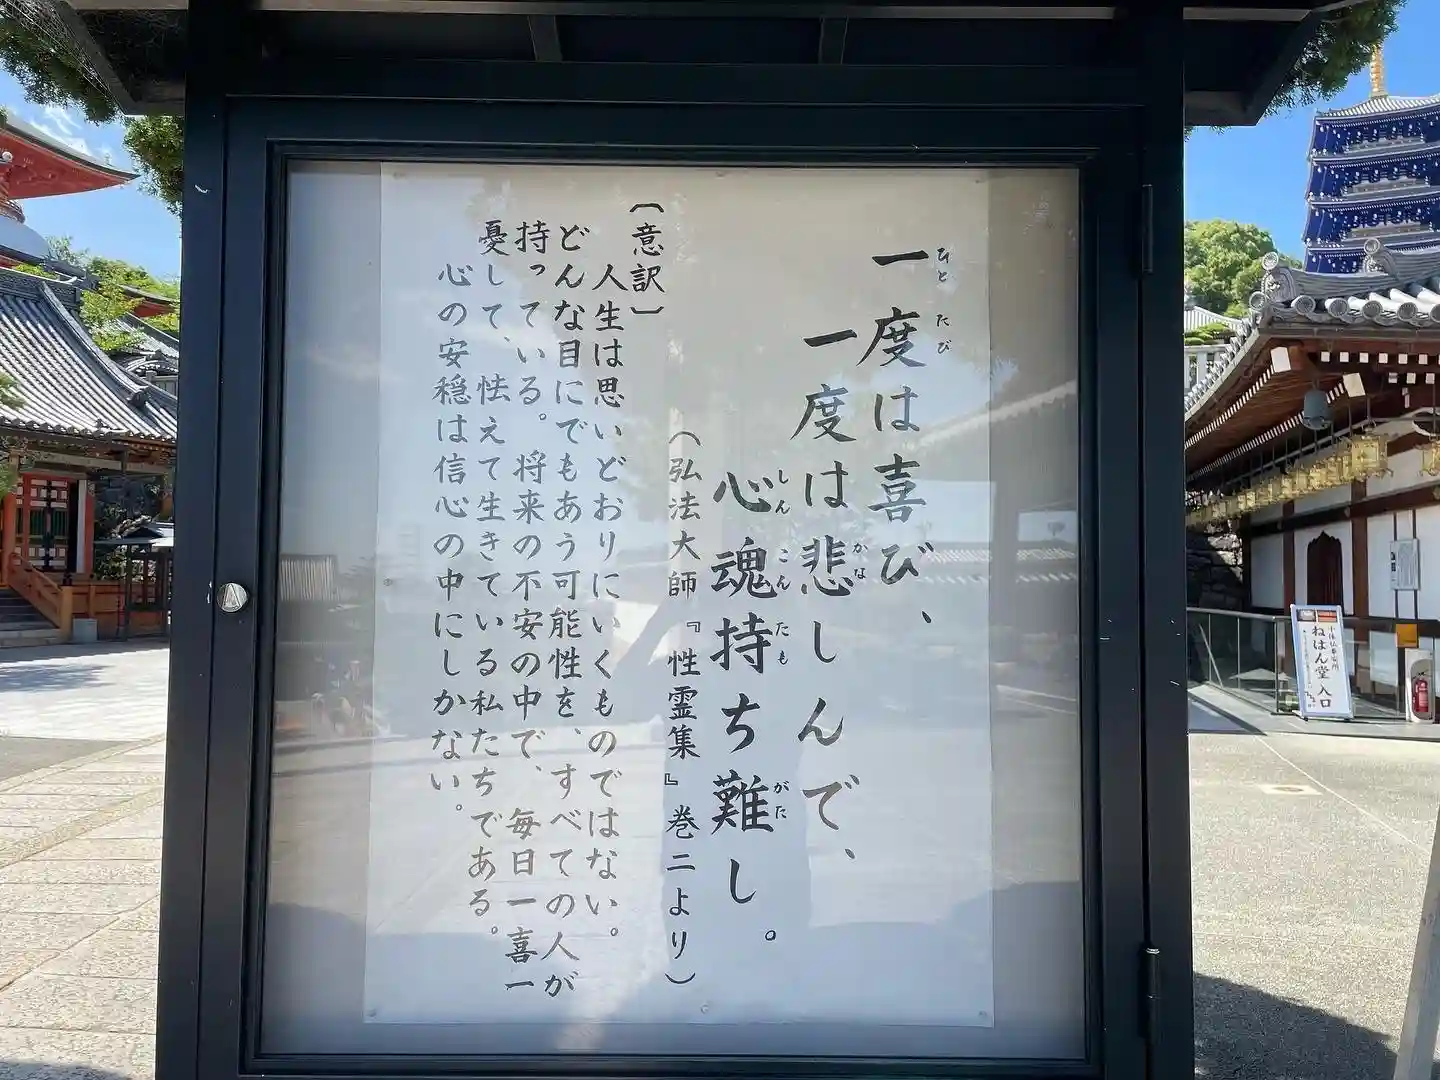 一度は喜び、
一度は悲しんで、
心魂持ち難し。
ひとたび
かな
しんこんたもがた
（弘法大師『性霊集』巻二より）
〔意訳〕
人生は思いどおりにいくものではない。
どんな目にでもあう可能性を、すべての人が
持っている。将来の不安の中で、毎日一喜一
憂して、怯えて生きている私たちである。
心の安穏は信心の中にしかない。
ねはん堂 入口